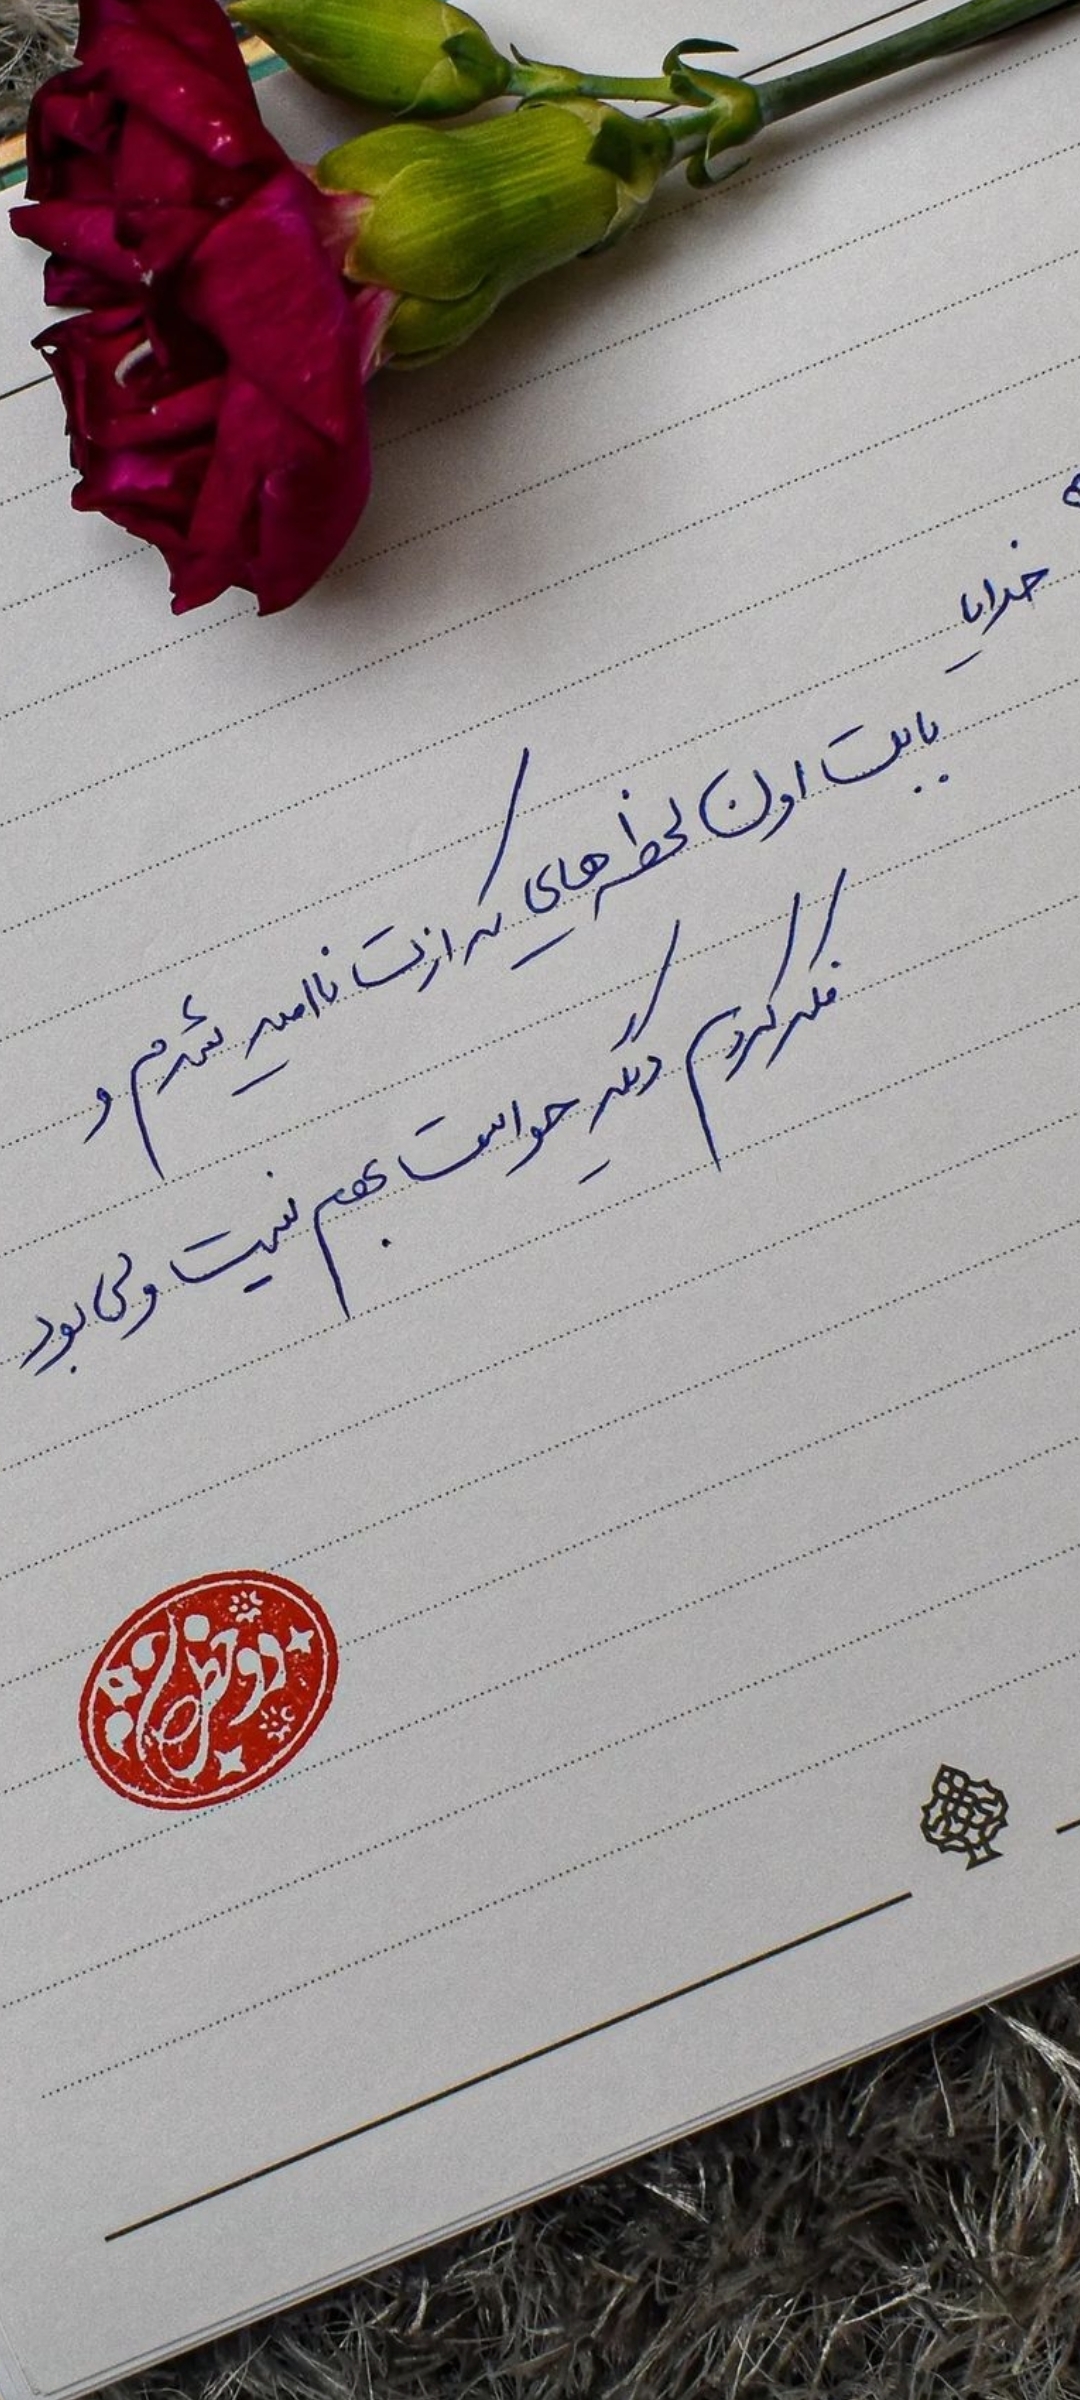 خدایا
بابت اون لحظه‌هایی که ازت ناامید شدم و
فکر کردم دیگه حواست بهم نیست ولی بود
دو خط